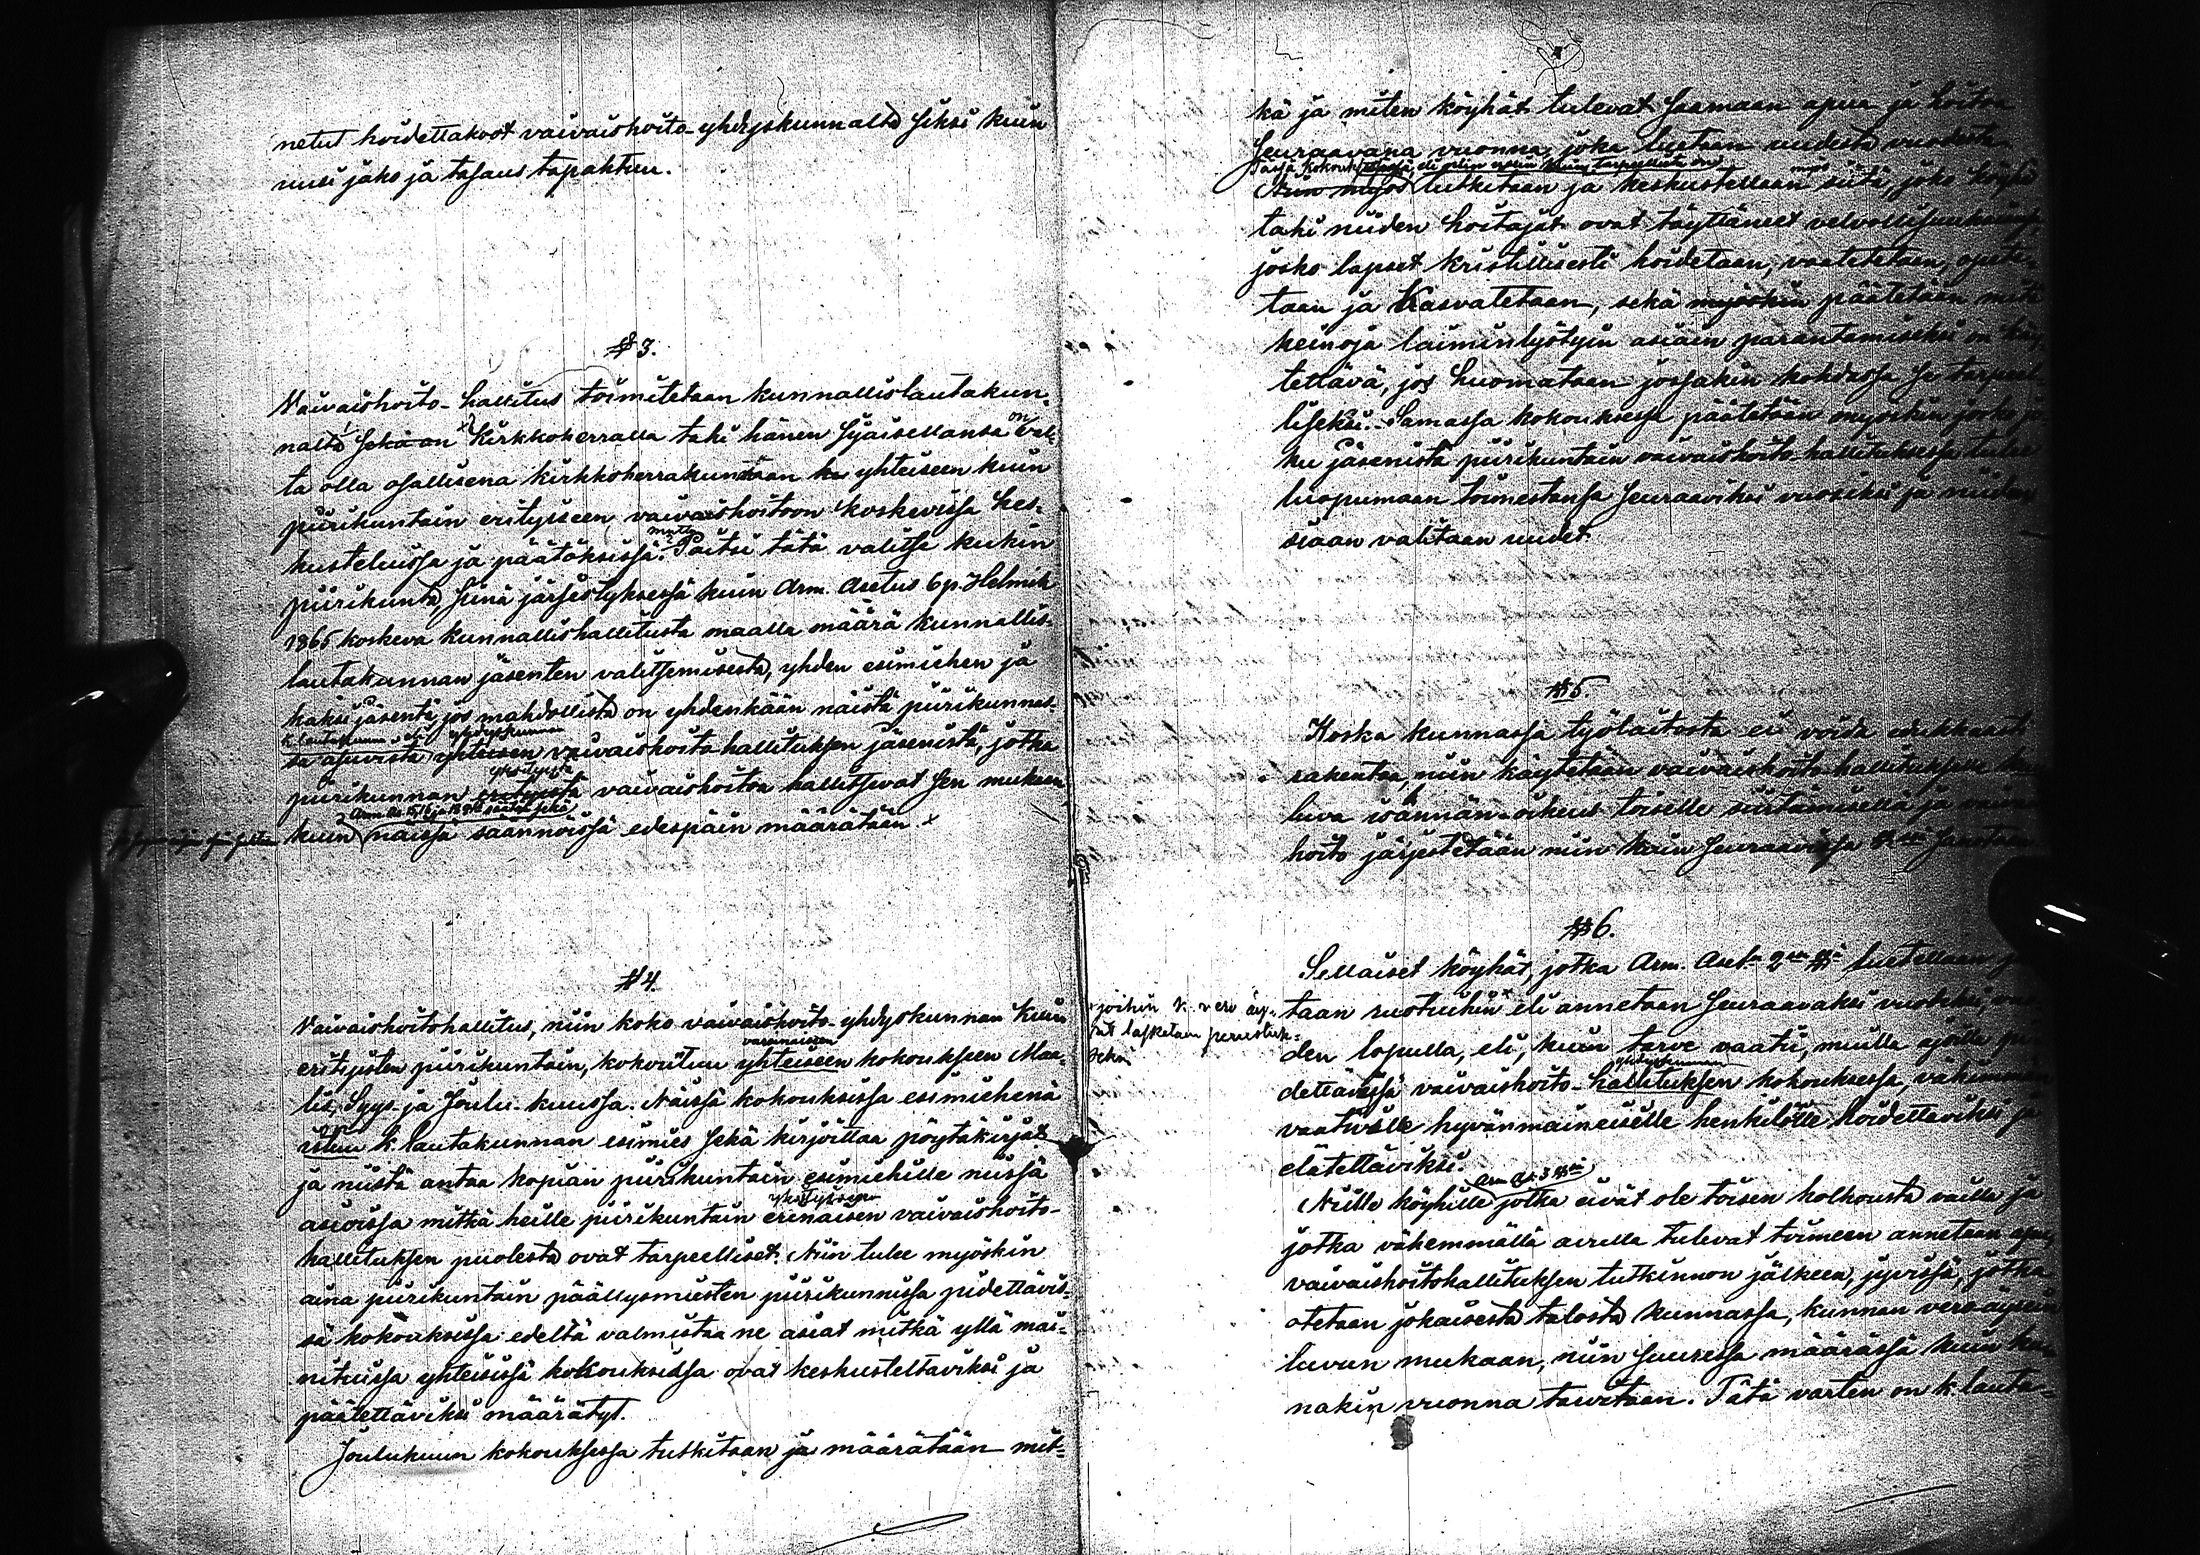 netut hoidettakoot vaivaishoito-yhdyskunnalta siksi kuin
uusi jako ja tasaus tapahtuu.
§ 3.
Vaivaishoito-hallitus toimitetaan kunnallislautakun-
nalta sekä on Kirkkoherralla tahi hänen sijaisellansa on val-
ta olla osallisena kirkkoherrakuntaan yhteiseen kuin
piirikuntain erityiseen vaivaishoitoon koskevissa kes-
kusteluissa ja päätöksissä. mutta Paitsi tätä valitse kukin
piirikunta, siinä järjestyksessä kuin Arm. Asetus 6 p. Helmik
1865 koskeva kunnallishallitusta maalla määrä kunnallis-
lautakunnan jäsenten valitsemisesta, yhden esimiehen ja
kaksi jäsentä, jos mahdollista on yhdenkään näistä piirikunnas-
k. lautakunnan eli yhdyskunnan
sa asuvista yhteisen vaivaishoito hallituksen jäsenistä, jotka
yksityistä
piirikunnan erityistä vaivaishoitoa hallitsevat sen mukaan
kuin näissä säännöissä edespäin määrätään. x
§ 4.
Vaivaishoitohallitus, niin koko vaivaishoito-yhdyskunnan kuin
varsinaiseen
eritysten piirikuntain, kokountuu yhteiseen kokoukseen Maa-
lis, Syys ja Joulu-kuussa. Näissä kokouksissa esimiehenä
istuu k. lautakunnan esimies sekä kirjoittaa pöytäkirjat
ja niistä antaa kopian piirikuntain esimiehille niissä
yksityksen
asioissa mitkä heille piirikuntain erinäisen vaivaishoito-
hallituksen puolesta ovat tarpeelliset. Niin tulee myöskin
aina piirikuntain päällysmiesten piirikunnissa pidettävis-
sä kokouksissa edeltä valmistaa ne asiat mitkä yllä mai-
nituissa yhteisissä kokouksissa ovat keskusteltaviksi ja
päätettäviksi määrätyt.
Joulukuun kokouksessa tutkitaan ja määrätään mit-
kä ja miten köyhät tulevat saamaan apua ja hoitoa
seuraavana vuonna, joka luetaan uudesta vuodesta.
Niin myös tutkitaan ja keskustellaan siitä, joko
tahi niiden hoitajat ovat täyttäneet
josko lapset kristillisesti hoidetaan, vaatetetaan, opete-
taan ja Kasvatetaan, sekä myöskin päätetään mitä
keinoja laiminlyötyin asiain parantamiseksi on käy-
tettävä, jos huomataan jossakin kohdassa se tarpeel-
liseksi. Samassa kokouksessa päätetään myöskin
ku jäsenistä piirikuntain vaivaishoito hallituksessa tulee
luopumaan toimestansa seuraaviksi vuosiksi ja niiden
siaan valitaan uudet.
§ 5.
Koska kunnassa työlaitosta ei voida
rakentaa, niin käytetään vaivaishoito-hallituksen
luva isännän-oikeus toiselle siirtämisellä ja
hoito järjestetään niin kuin seuraavissa
§ 6.
Sellaiset köyhät, jotka Arm. Aset. 2 § luetellaan
taan ruotuihin x eli annetaan seuraavaksi vuodeksi,
x joihin k. vero äy-
rit lasketaan perustuk-
seksi
den lopulla, eli, kuin tarve vaatii, muilla ajalla
yhdyskunnan
dettävässä vaivaishoito-hallituksen kokouksessa, vähimmän
vaativalle hyvänmaineiselle henkilölle hoidettaviksi ja
elätettäviksi.
Arm. As. 3 §
Niille köyhille jotka eivät ole toisen holhousta vailla ja
jotka vähemmällä avulla tulevat toimeen annetaan apua
vaivaishoitohallituksen tutkinnon jälkeen, jyvissä, jotka
otetaan jokaisesta talosta kunnassa, kunnan veroäyrein
luvun mukaan, niin suuressa määrässä kuin kun-
nakin vuonna tarvitaan. Tätä varten on k. lauta-